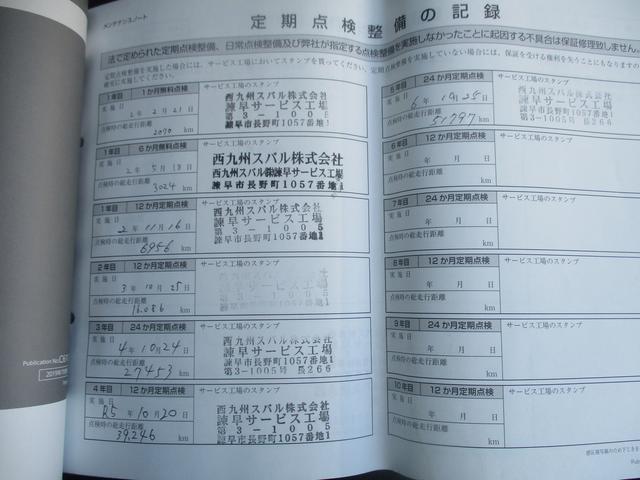 メンテナンスノート
定期点検整備の記録
法で定められた定期点検整備、日常点検整備及び弊社が指定する点検整備を実施しなかったことに起因する不具合は保証修理致しません。
定期点検整備を実施した場合には、サービス工場においてスタンプを貰ってください。定期点検整備を実施していない場合には、保証を受ける権利を失うことにもなりますので
確実に実施してください。
1年目 1か月無料点検
実施日
2年 2月 21日
点検時の総走行距離
2090 km
サービス工場のスタンプ
西九州スバル株式会社
諫早サービス工場
第3-1005
諫早市長野町1057番地1
1年目 6か月無料点検
実施日
2年 5月 18日
点検時の総走行距離
3024 km
サービス工場のスタンプ
西九州スバル株式会社
西九州スバル㈱諫早サービス工場
諫早市長野町1057番地1
1年目 12か月定期点検
実施日
2年 11月 16日
点検時の総走行距離
6956 km
サービス工場のスタンプ
西九州スバル株式会社
諫早サービス工場
第3-1005
諫早市長野町1057番地1
2年目 12か月定期点検
実施日
3年 10月 25日
点検時の総走行距離
16.086 km
サービス工場のスタンプ
3年目 24か月定期点検
実施日
4年 10月 24日
点検時の総走行距離
27453 km
サービス工場のスタンプ
西九州スバル株式会社
諫早サービス工場
諫早市長野町1057番地1
第3-1005号 長266
4年目 12か月定期点検
実施日
R5年 10月 20日
点検時の総走行距離
39,246 km
サービス工場のスタンプ
西九州スバル株式会社
諫早サービス工場
第3-1005
諫早市長野町1057番地1
5年目 24か月定期点検
実施日
6年 10月 25日
点検時の総走行距離
51797 km
サービス工場のスタンプ
西九州スバル株式会社
諫早サービス工場
諫早市長野町1057番地1
6年目 12か月定期点検
実施日
年 月 日
点検時の総走行距離
km
サービス工場のスタンプ
7年目 24か月定期点検
実施日
年 月 日
点検時の総走行距離
km
サービス工場のスタンプ
8年目 12か月定期点検
実施日
年 月 日
点検時の総走行距離
km
サービス工場のスタンプ
9年目 24か月定期点検
実施日
年 月 日
点検時の総走行距離
km
サービス工場のスタンプ
10年目 12か月定期点検
実施日
年 月 日
点検時の総走行距離
km
サービス工場のスタンプ
Publication No.